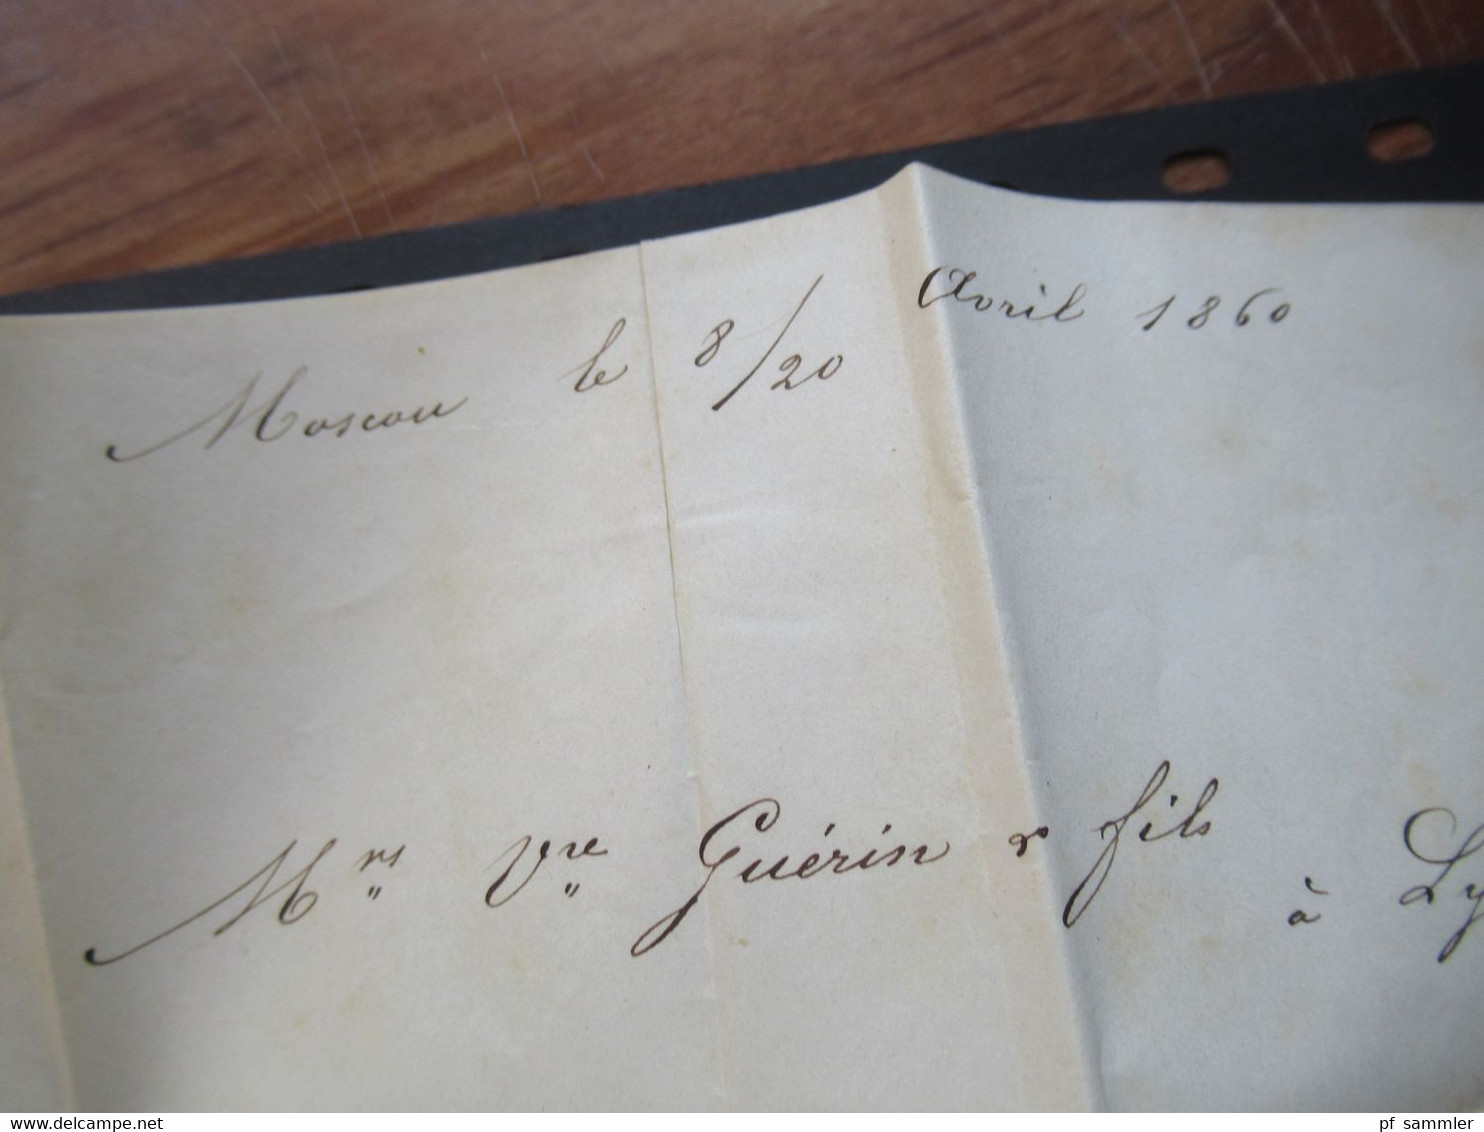 Moscou le 8/20 Avril 1860
Mrs Vve Guérin & fils à Ly
pf_sammler